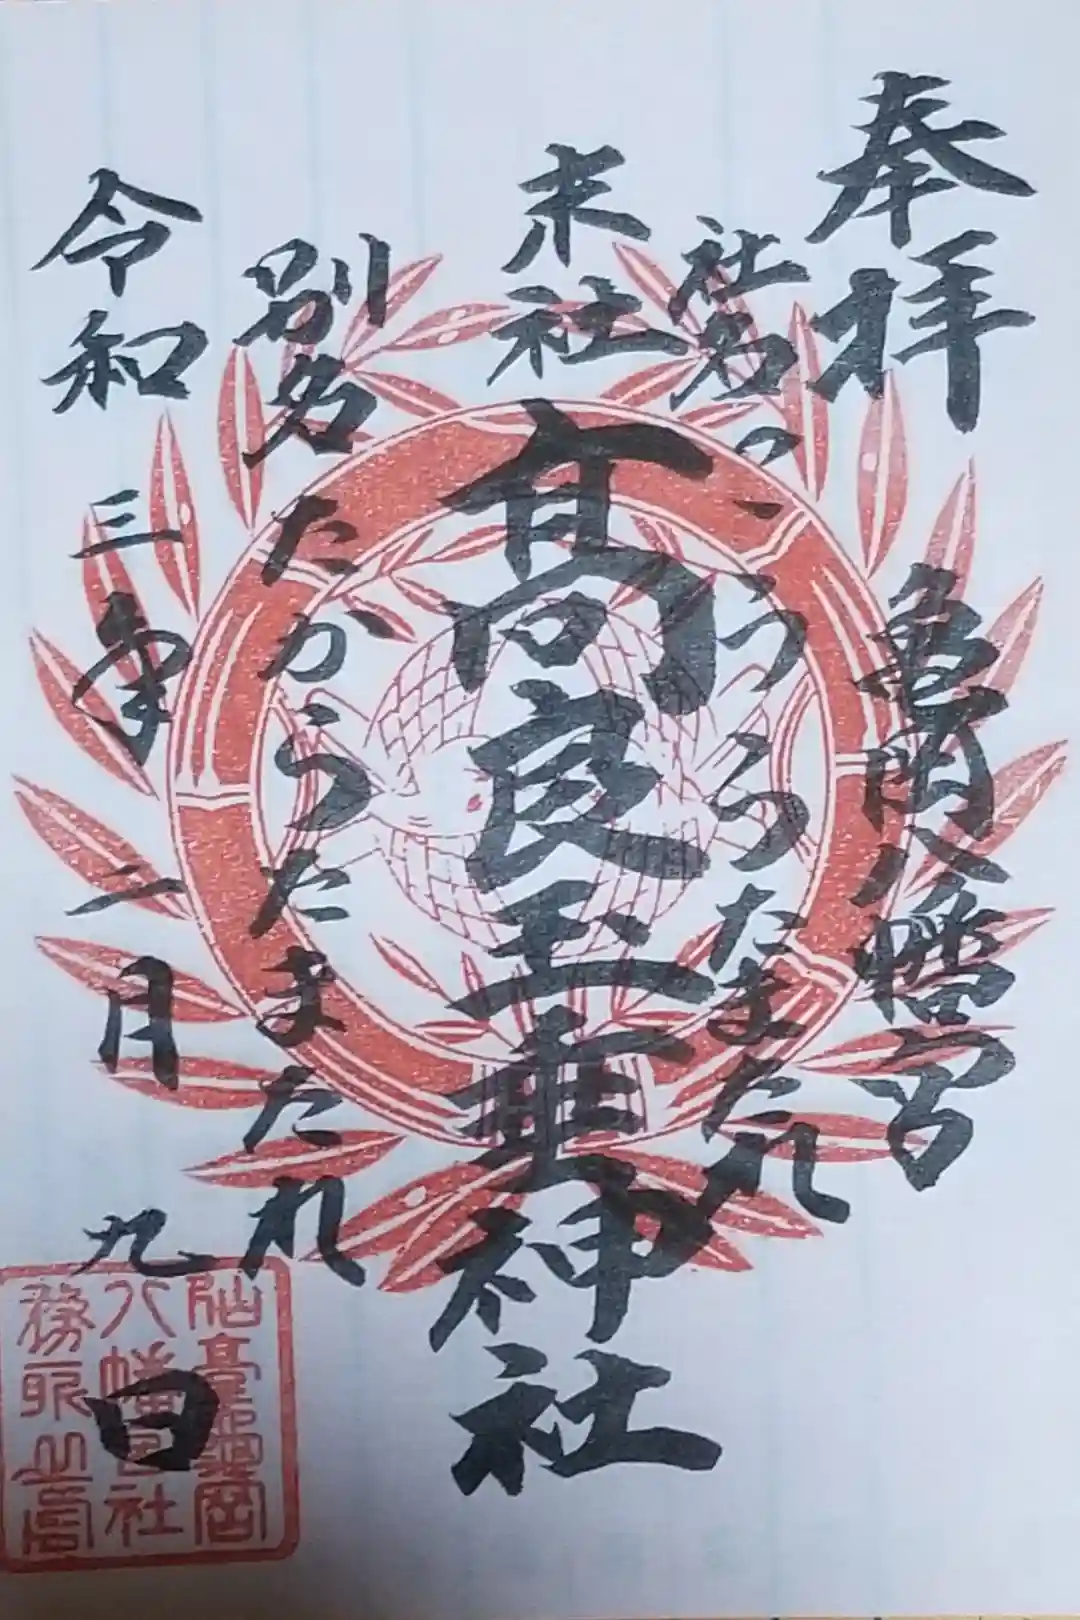 奉拝
亀岡八幡宮
社名 こうらたまたれ
末社
高良玉垂神社
別名 たからたまたれ
令和三年二月九日
仙臺龜岡
八幡宮社
務所之印